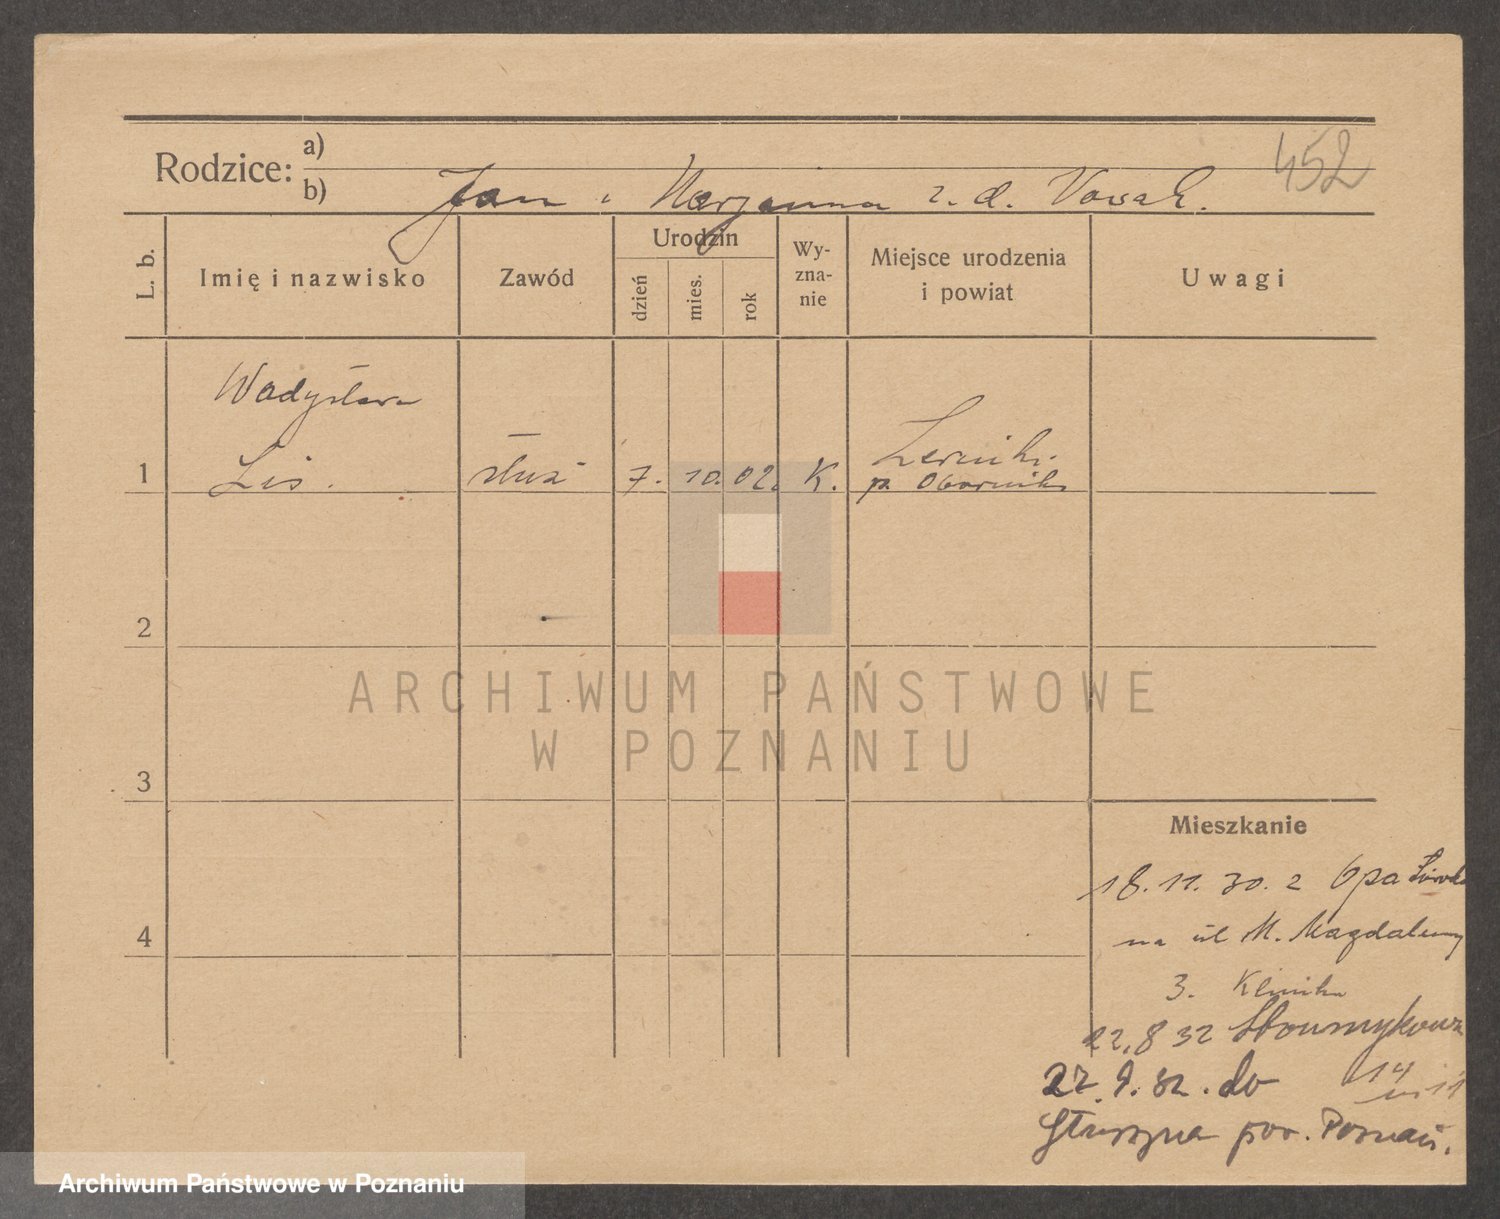 452
Rodzice: a)
b) Jan i Marjanna z. d. Nowak.
L. b.
Imię i nazwisko
Zawód
Urodzin
dzień
mies.
rok
Wy-
zna-
nie
Miejsce urodzenia
i powiat
Uwagi
Władysława
1 Lis. służ 7. 10. 02. K.
p. Oborniki
2
3
4
ARCHIWUM PAŃSTWOWE
W POZNANIU
Mieszkanie
18.11.30. z
na ul M. Magdaleny
3. Klinika
22.8 32
14
27.9.32. do
pow. Poznań.
Archiwum Państwowe w Poznaniu